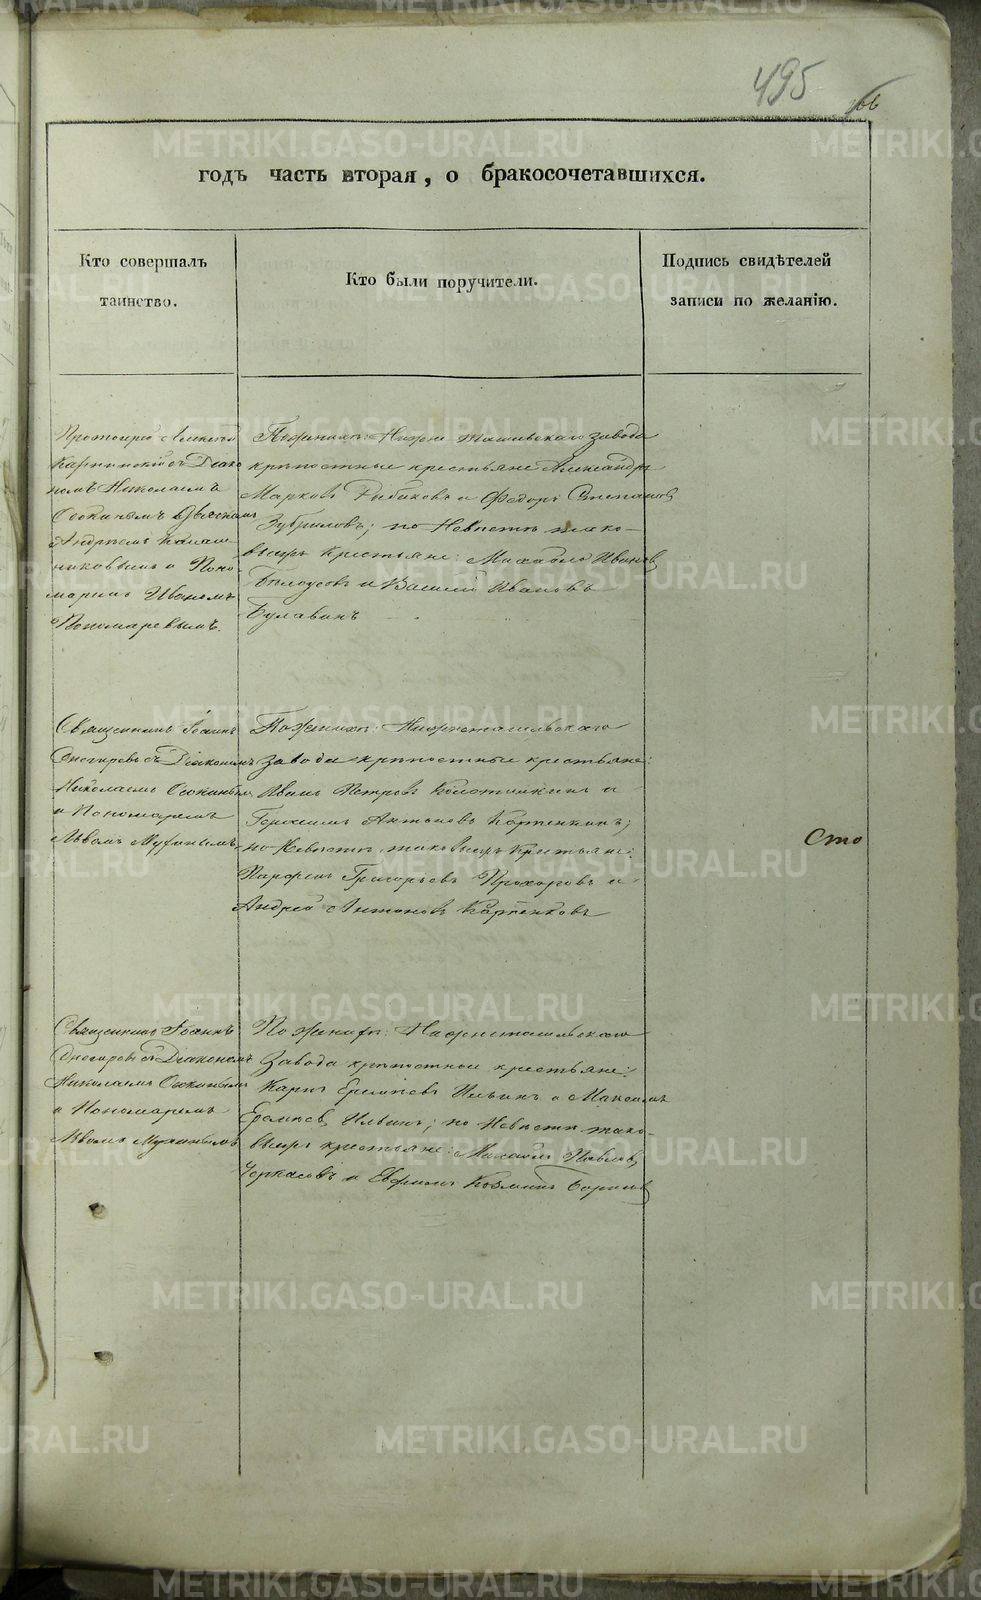 495
годъ часть вторая, о бракосочетавшихся.
Кто совершалъ
таинство.
Кто были поручители.
Подпись свидѣтелей
записи по желанію.
Протоіерей Алексѣй
Карпинскій съ Діако
номъ Николаемъ
Осокинымъ
Андреемъ Калаш
никовымъ и Поно
маремъ Иваномъ
Пономаревымъ.
По женихѣ: Нижне Тагильскаго завода
крѣпостные крестьяне Александръ
Марковъ Рябиковъ и Федоръ Степановъ
Зубриловъ; по Невѣстѣ тако-
выежъ крестьяне: Михайло Ивановъ
Бѣлоусовъ и Василій Ивановъ
Булавинъ
Священникъ Іоаннъ
съ Діакономъ
Николаемъ Осокинымъ
и Пономаремъ
Львомъ Мухинымъ
По женихѣ: Нижнетагильскаго
завода крѣпостные крестьяне:
Иванъ Петровъ и
Герасимъ Антоновъ
по Невѣстѣ таковыежъ Крестьяне:
Парфенъ Григорьевъ Прохоровъ и
Андрей Антоновъ
Сто
Священникъ Іоаннъ
съ Діакономъ
Николаемъ Осокинымъ
и Пономаремъ
Львомъ Мухинымъ
По женихѣ: Нижнетагильскаго
Завода крѣпостные крестьяне:
Карпъ Еремѣевъ Ильинъ и Максимъ
Еремѣевъ Ильинъ; по Невѣстѣ тако-
выежъ крестьяне: Михайло Павловъ
Черкасовъ и Евфимъ Козминъ
METRIKI.GASO-URAL.RU